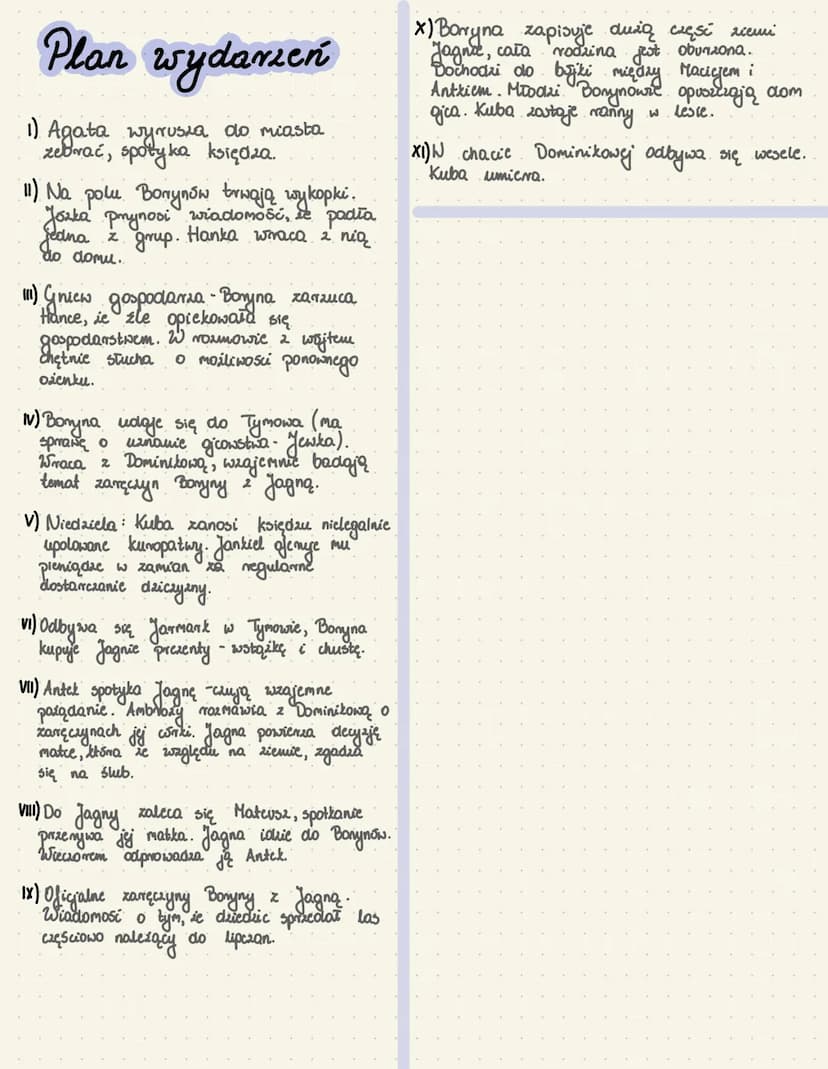 Plan wydarzeń
I) Agata wyrusza do miasta
żebrać, spotyka księdza.
II) Na polu Borynów trwają wykopki.
Józka przynosi wiadomość, że padła
jedna z grup. Hanka wraca z nią
do domu.
III) Gniew gospodarza - Boryna zarzuca
Hance, że źle opiekowała się
gospodarstwem. W rozmowie z wójtem
chętnie słucha o możliwości ponownego
ożenku.
IV) Boryna udaje się do Tymowa (ma
sprawę o uznanie ojcowstwa - Jewka).
Wraca z Dominikową, wzajemnie badają
temat zaręczyn Boryny z Jagną.
V) Niedziela: Kuba zanosi księdzu nielegalnie
upolowane kuropatwy. Jankiel oferuje mu
pieniądze w zamian za regularne
dostarczanie dziczyzny.
VI) Odbywa się Jarmark w Tymowie, Boryna
kupuje Jagnie prezenty - wstążkę i chustę.
VII) Antek spotyka Jagnę - czują wzajemne
pożądanie. Ambroży rozmawia z Dominikową o
zaręczynach jej córki. Jagna powierza decyzję
matce, która ze względu na ziemie, zgadza
się na ślub.
VIII) Do Jagny zaleca się Mateusz, spotkanie
przerywa jej matka. Jagna idzie do Borynów.
Wieczorem odprowadza ją Antek.
IX) Oficjalne zaręczyny Boryny z Jagną.
Wiadomość o tym, że dziedzic sprzedał las
częściowo należący do lipczan.
X) Boryna zapisuje dużą część ziemi
Jagnie, cała rodzina jest oburzona.
Dochodzi do bójki między Maciejem i
Antkiem. Młodzi Borynowie opuszczają dom
ojca. Kuba zostaje ranny w lesie.
XI) W chacie Dominikowej odbywa się wesele.
Kuba umiera.